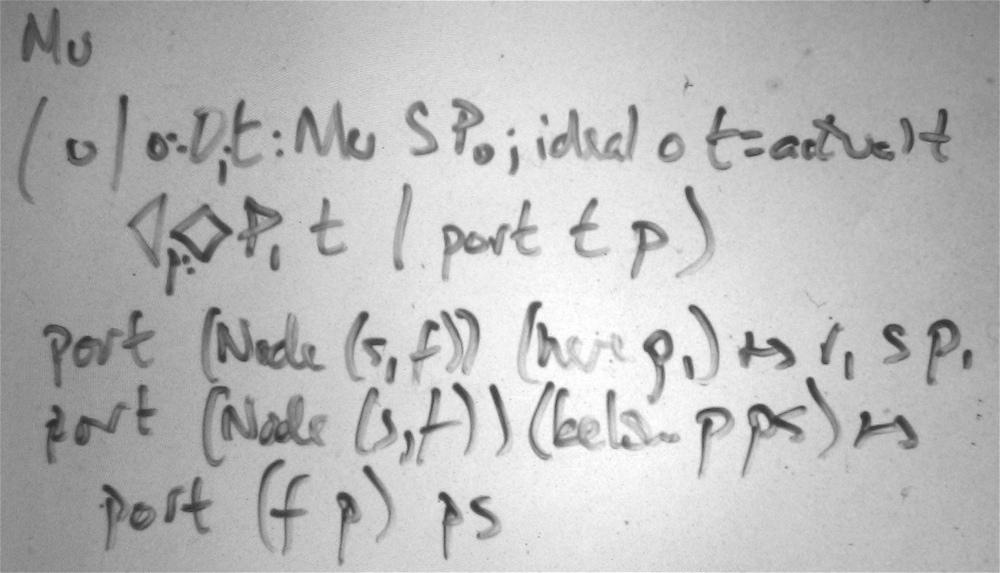 Mu
(o | o:D;t:Mu S P₀; ideal o t = actual t
◁ p:◇P₁ t | port t p)
port (Node (s,f)) (here p₁) ↦ r₁ s p₁
port (Node (s,f)) (below p ps) ↦
port (f p) ps